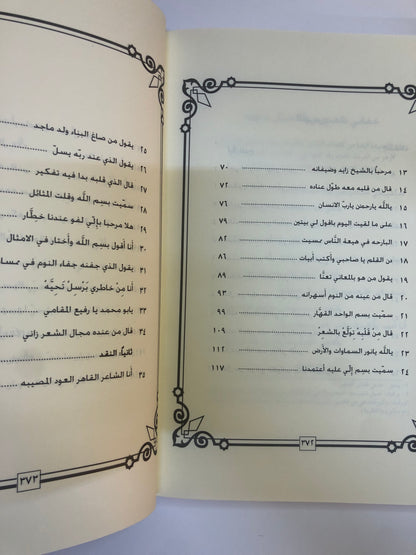 ١٣ مرحباً بالشيخ زايد وضيفانه ٧٠
١٤ قال من قلبه معه طول عناده ٧٢
١٥ يالله يارحمن يارب الانسان ٧٦
١٦ على ما لقيت اليوم باقول لي بيتين ٧٩
١٧ البارحه في هيعة النّاس ممسيت ٨٣
١٨ نن القلم يا صاحبي وأكتب أبيات ٨٦
١٩ يقول من هو بالمعاني تعنّا ٨٩
٢٠ قال من عينه من النوم أسهرانه ٩٣
٢١ سمّيت بسم الواحد القهّار ٩٩
٢٢ قال من قلبه تولّع بالشعر ١٠٩
٢٣ يالله يانور السماوات والأرض ١١٢
٢٤ سميت بسم إلّي عليه أعتمدنا ١١٧
٣٧٢
٢٥ يقول من صاغ البناء ولد ماجد
٢٦ يقول الذي عند ربّه يسل
٢٧ قال الذي قلبه بدا فيه تفكير
٢٨ سمّيت بسم اللّه وقلت المثائل
٢٩ هلا مرحبا بإلّي لفو عندنا خطّار
٣٠ أنا أقول بسم اللّه وأختار في الامثال
٣١ يقول الذي جفنه جفاء النوم في
٣٢ أنا من خاطري برسل تحيّه
٣٣ يابو محمد يا رفيع المقامي
٣٤ قال من عنده مجال الشعر زاني
ثانياً: النقد
٣٥ أنا الشاعر القاهر العود المصيبه
٣٧٣